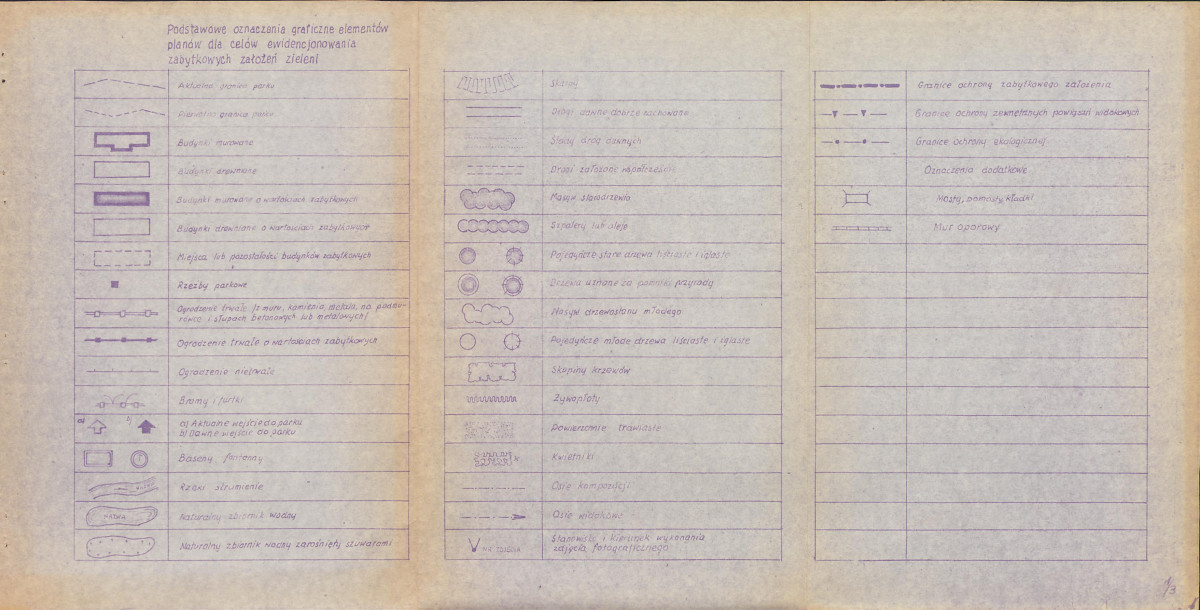 Podstawowe oznaczenia graficzne elementów
planów dla celów ewidencjonowania
zabytkowych założeń zieleni
Aktualna granica parku
Pierwotna granica parku
Budynki murowane
Budynki drewniane
Budynki murowane o wartościach zabytkowych
Budynki drewniane o wartościach zabytkowych
Miejsca lub pozostałości budynków zabytkowych
Rzeźby parkowe
Ogrodzenie trwałe /z muru, kamienia, metalu, na podmu-
rówce i słupach betonowych lub metalowych/
Ogrodzenie trwałe o wartościach zabytkowych
Ogrodzenie nietrwałe
Bramy i furtki
a)
b)
a) Aktualne wejście do parku
b) Dawne wejście do parku
Baseny, fontanny
Rzeki strumienie
nazwa
Naturalny zbiornik wodny
Naturalny zbiornik wodny zarośnięty szuwarami
Skarpy
Drogi dawne dobrze zachowane
Ślady dróg dawnych
Drogi założone współcześnie
Masyw starodrzewia
Szpalery lub aleje
Pojedyńcze stare drzewa liściaste i iglaste
Drzewa uznane za pomniki przyrody
Masyw drzewostanu młodego
Pojedyńcze młode drzewa liściaste i iglaste
Skupiny krzewów
Żywopłoty
Powierzchnie trawiaste
Kwietniki
Osie kompozycji
Osie widokowe
Stanowisko i kierunek wykonania
zdjęcia fotograficznego
Granice ochrony zabytkowego założenia
Granice ochrony zewnętrznych powiązań widokowych
Granice ochrony ekologicznej
Oznaczenia dodatkowe
Mosty, pomosty, kładki
Mur oporowy
1/3